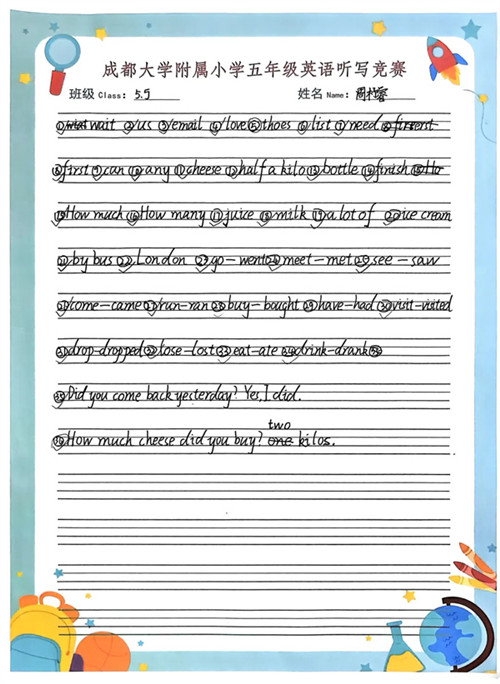 成都大学附属小学五年级英语听写竞赛
班级 Class: 5.5 姓名 Name:
① wait ② us ③ email ④ love ⑤ thoes ⑥ list ⑦ need
⑧ first ⑨ can ⑩ any ⑪ cheese ⑫ half a kilo ⑬ bottle ⑭ finish
⑮ How much ⑯ How many ⑰ juice ⑱ milk ⑲ a lot of ⑳ ice cream
㉑ by bus ㉒ London ㉓ go-went ㉔ meet-met ㉕ see-saw
㉖ come-came ㉗ run-ran ㉘ buy-bought ㉙ have-had ㉚ visit-visited
㉛ drop-dropped ㉜ lose-lost ㉝ eat-ate ㉞ drink-drank
㉟ Did you come back yesterday? Yes, I did.
㊱ How much cheese did you buy? two kilos.